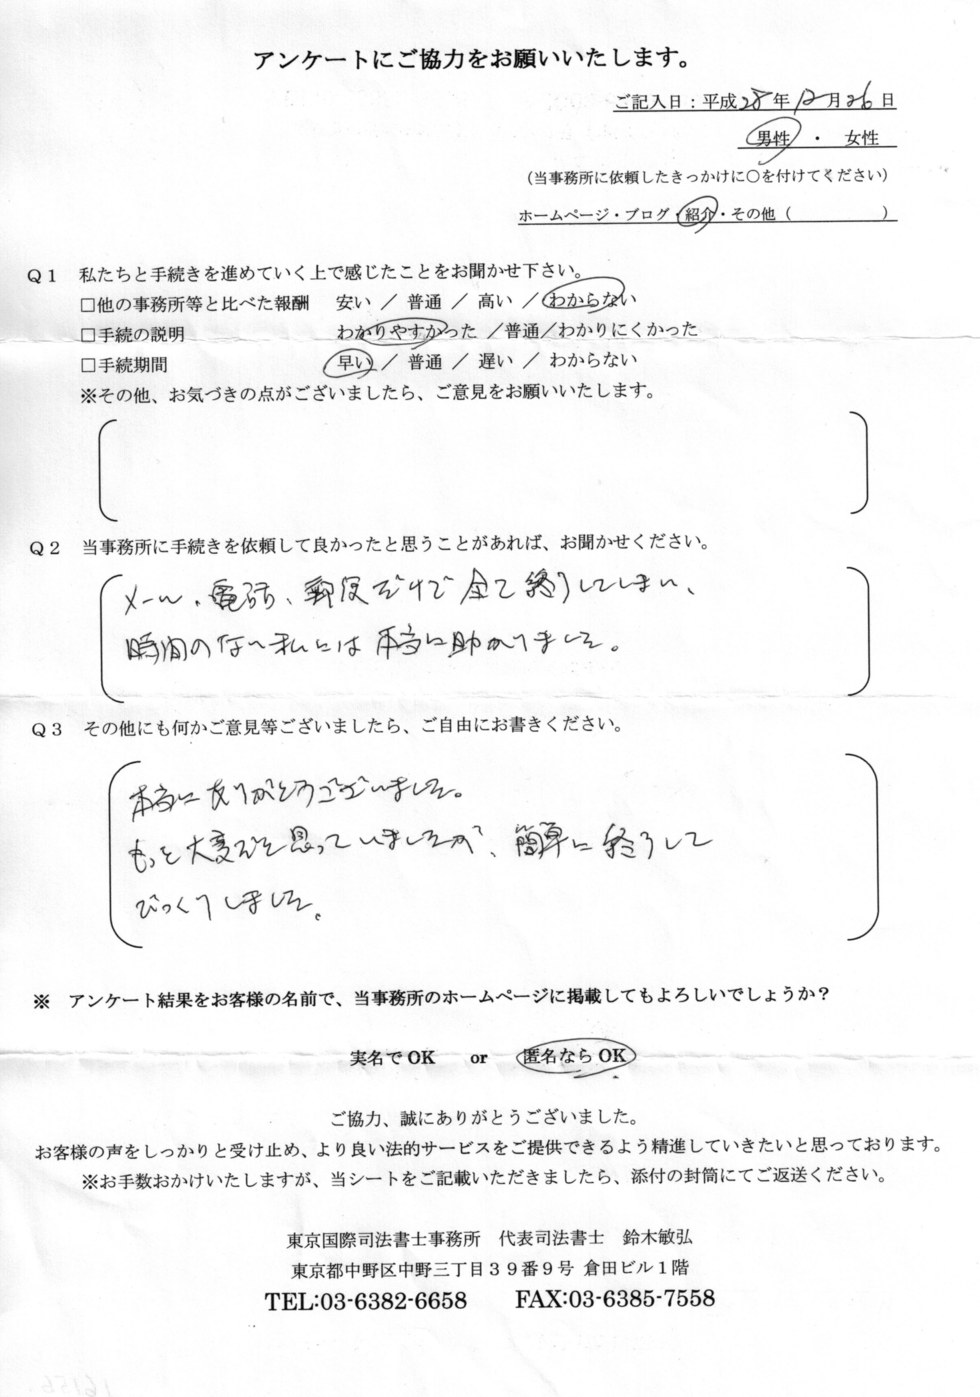 アンケートにご協力をお願いいたします。
ご記入日：平成28年12月26日
男性 ・ 女性
（当事務所に依頼したきっかけに○を付けてください）
ホームページ・ブログ・紹介・その他（　　　　　）
Q1　私たちと手続きを進めていく上で感じたことをお聞かせ下さい。
□他の事務所等と比べた報酬　安い ／ 普通 ／ 高い ／ わからない
□手続の説明　わかりやすかった ／普通／わかりにくかった
□手続期間　早い ／ 普通 ／ 遅い ／ わからない
※その他、お気づきの点がございましたら、ご意見をお願いいたします。
Q2　当事務所に手続きを依頼して良かったと思うことがあれば、お聞かせください。
メール、電話、郵便だけで全て終了してしまい、
時間のない私には本当に助かりました。
Q3　その他にも何かご意見等ございましたら、ご自由にお書きください。
本当にありがとうございました。
もっと大変だと思っていましたが、簡単に終了して
びっくりしました。
※　アンケート結果をお客様の名前で、当事務所のホームページに掲載してもよろしいでしょうか？
実名でOK　or　匿名ならOK
ご協力、誠にありがとうございました。
お客様の声をしっかりと受け止め、より良い法的サービスをご提供できるよう精進していきたいと思っております。
※お手数おかけいたしますが、当シートをご記載いただきましたら、添付の封筒にてご返送ください。
東京国際司法書士事務所　代表司法書士　鈴木敏弘
東京都中野区中野三丁目39番9号 倉田ビル1階
TEL:03-6382-6658　FAX:03-6385-7558